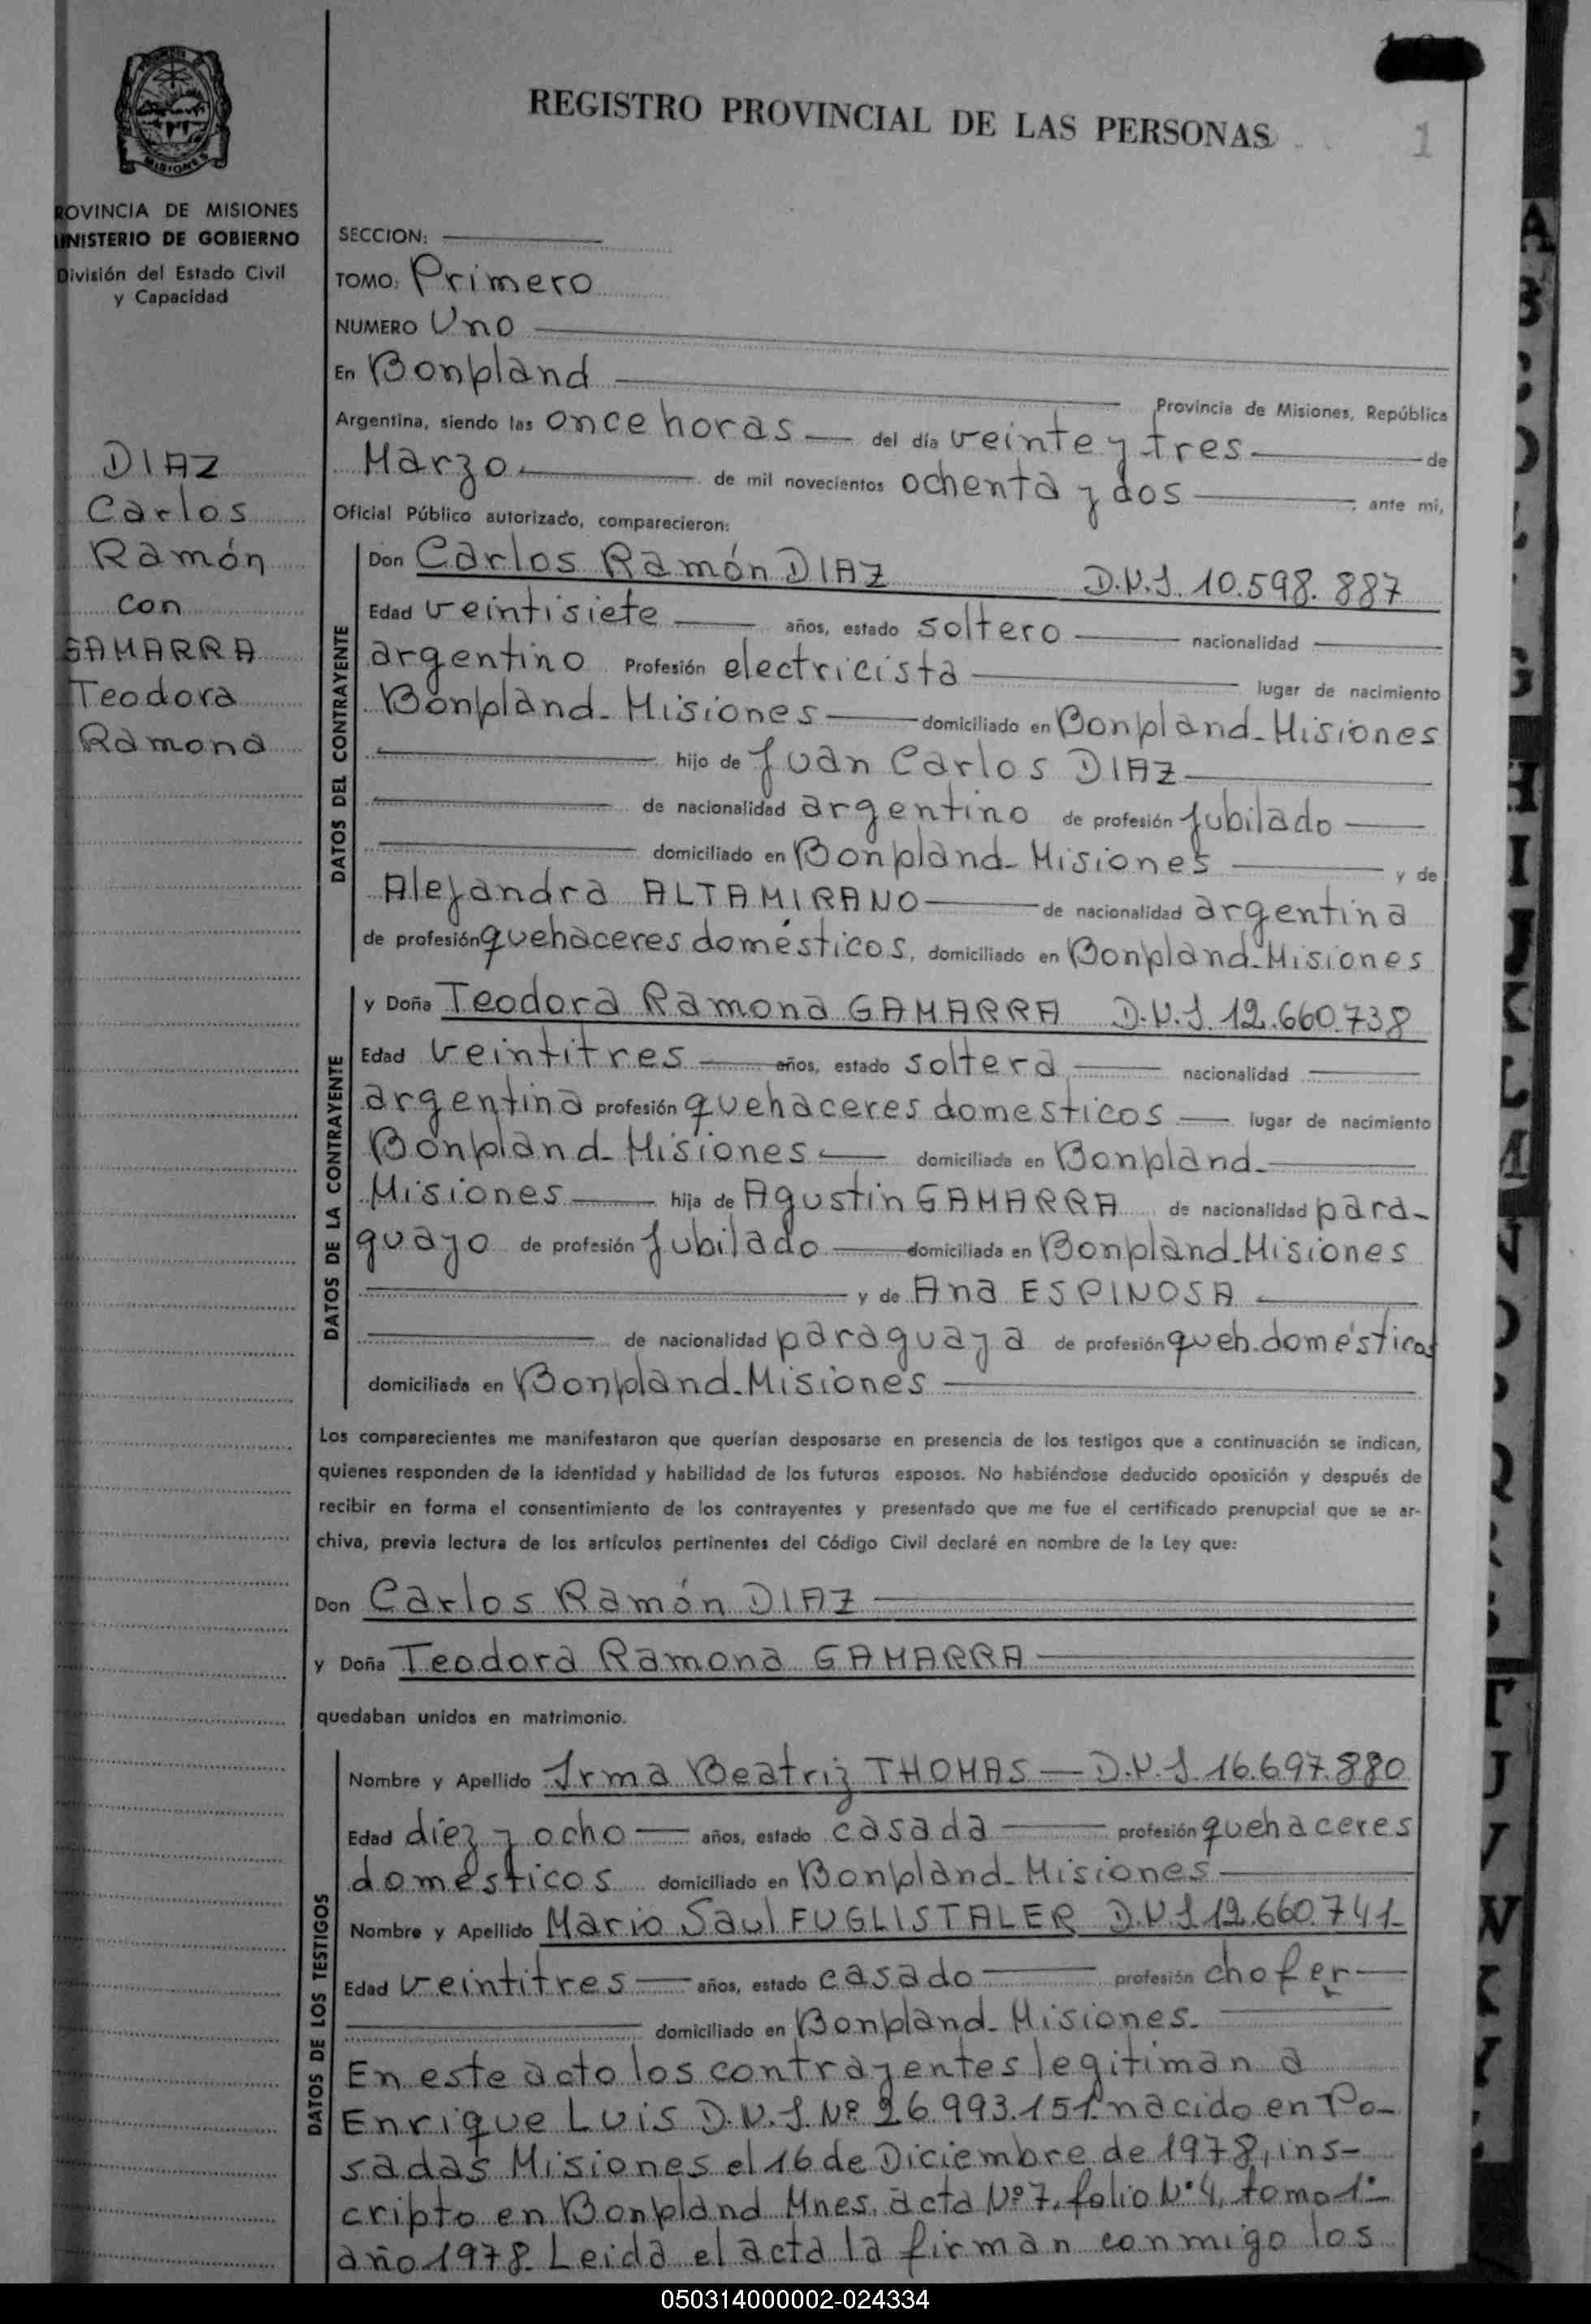 REGISTRO PROVINCIAL DE LAS PERSONAS
1
MISIONES
ROVINCIA DE MISIONES
INISTERIO DE GOBIERNO
División del Estado Civil
y Capacidad
DIAZ
Carlos
Ramón
con
GAMARRA
Teodora
Ramona
SECCION:
TOMO: Primero
NUMERO Uno
En Bonpland
Provincia de Misiones, República
Argentina, siendo las once horas del día veinte y tres de
Marzo de mil novecientos ochenta y dos ; ante mi,
Oficial Público autorizado, comparecieron:
DATOS DEL CONTRAYENTE
Don Carlos Ramón DIAZ D.N.I. 10.598.887
Edad veintisiete años, estado soltero nacionalidad
argentino Profesión electricista lugar de nacimiento
Bonpland-Misiones domiciliado en Bonpland-Misiones
hijo de Juan Carlos DIAZ
de nacionalidad argentino de profesión jubilado
domiciliado en Bonpland-Misiones y de
Alejandra ALTAMIRANO de nacionalidad argentina
de profesión quehaceres domésticos, domiciliado en Bonpland-Misiones
DATOS DE LA CONTRAYENTE
y Doña Teodora Ramona GAMARRA D.N.I. 12.660.738
Edad veintitres años, estado soltera nacionalidad
argentina profesión quehaceres domesticos lugar de nacimiento
Bonpland-Misiones domiciliada en Bonpland-
Misiones hija de Agustin GAMARRA de nacionalidad para-
guayo de profesión jubilado domiciliada en Bonpland-Misiones
y de Ana ESPINOSA
de nacionalidad paraguaya de profesión queh. domésticos
domiciliada en Bonpland-Misiones
Los comparecientes me manifestaron que querían desposarse en presencia de los testigos que a continuación se indican,
quienes responden de la identidad y habilidad de los futuros esposos. No habiéndose deducido oposición y después de
recibir en forma el consentimiento de los contrayentes y presentado que me fue el certificado prenupcial que se ar-
chiva, previa lectura de los artículos pertinentes del Código Civil declaré en nombre de la Ley que:
Don Carlos Ramón DIAZ
y Doña Teodora Ramona GAMARRA
quedaban unidos en matrimonio.
DATOS DE LOS TESTIGOS
Nombre y Apellido Irma Beatriz THOMAS - D.N.I. 16.697.880
Edad diez y ocho años, estado casada profesión quehaceres
domésticos domiciliado en Bonpland-Misiones
Nombre y Apellido Mario Saul FUGLISTALER D.N.I 12.660.741-
Edad veintitres años, estado casado profesión chofer
domiciliado en Bonpland-Misiones.
En este acto los contrayentes legitiman a
Enrique Luis D.N.I. Nº 26.993.151. nacido en Po-
sadas Misiones el 16 de Diciembre de 1978, ins-
cripto en Bonpland Mnes. acta Nº 7, folio Nº 4, tomo 1º
año 1978. Leida el acta la firman conmigo los
050314000002-024334